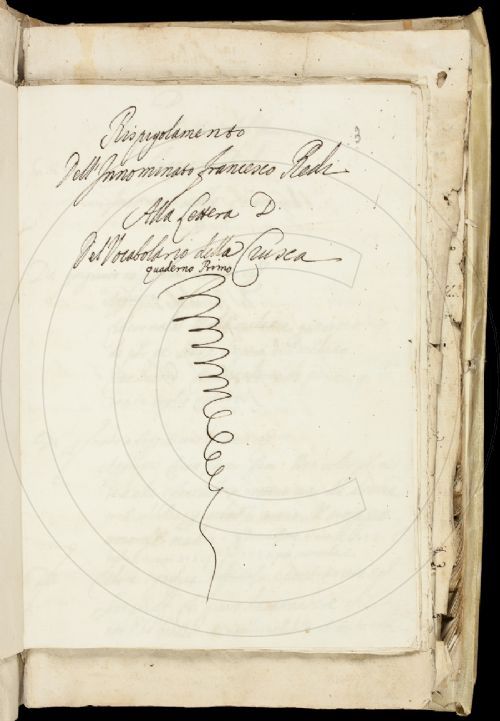 Rispigolamento
3
Dell' Innominato Francesco Redi
Alla Lettera D.
Del Vocabolario della Crusca
quaderno Primo